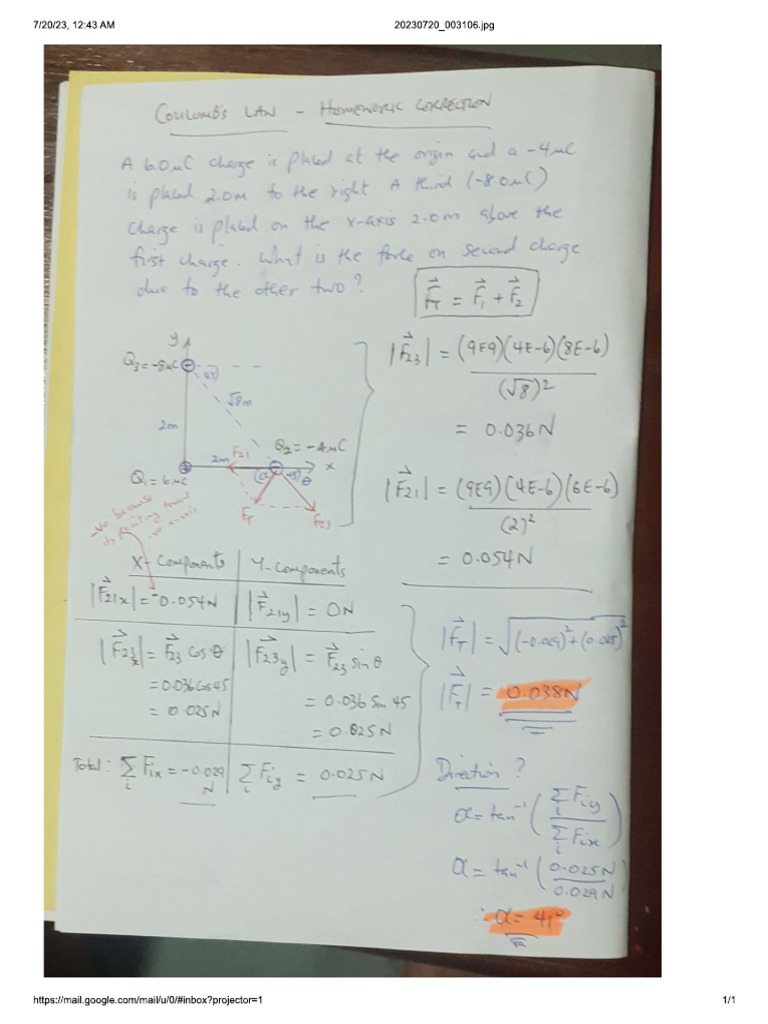 7/20/23, 12:43 AM
20230720_003106.jpg
COULOMB'S LAW – HOMEWORK CORRECTION
A 6.0μC charge is placed at the origin and a -4μC
is placed 2.0m to the right. A third (-8.0μC)
charge is placed on the x-axis 2.0m above the
first charge. What is the force on second charge
due to the other two?
F⃗T = F⃗1 + F⃗2
y
Q3 = -8μC
45
√8m
2m
Q2 = -4μC
2m
F21
x
α
45
θ
Q1 = 6μC
FT
F23
-ve because
its pointing toward
-ve x-axis
|F⃗23| = (9E9)(4E-6)(8E-6)
(√8)²
= 0.036N
|F⃗21| = (9E9)(4E-6)(6E-6)
(2)²
= 0.054N
X-Components
Y-Components
|F⃗21x| = -0.054N
|F⃗21y| = 0N
|F⃗23x| = F⃗23 cos θ
= 0.036 cos 45
= 0.025N
|F⃗23y| = F⃗23 sin θ
= 0.036 Sin 45
= 0.025N
Total: ∑i Fix = -0.029
N
∑i Fiy = 0.025N
|F⃗T| = √(-0.029)² + (0.025)²
|F⃗T| = 0.038N
Direction?
α = tan⁻¹ (∑i Fiy / ∑i Fix)
α = tan⁻¹ (0.025N / 0.029N)
∴ α = 41°
https://mail.google.com/mail/u/0/#inbox?projector=1
1/1